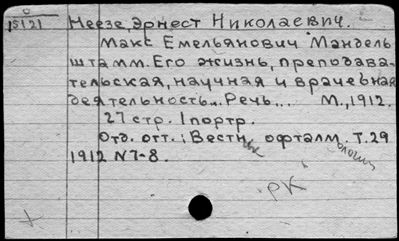 15121 Неезе, Эрнест Николаевич.
Макс Емельянович Мандель
штамм. Его жизнь, преподава-
тельская, научная и врачебная
деятельность... Речь... М., 1912.
27 стр. 1 портр.
Отд. отт.: Вестник офтальмологии Т.29
1912 N7-8.
РК